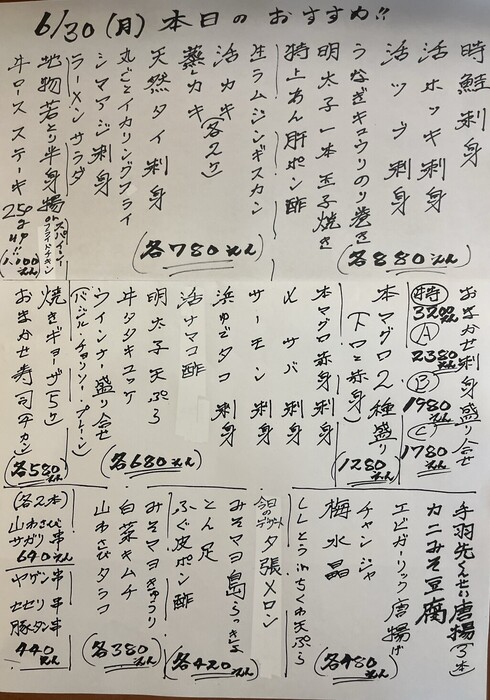 6/30(月)本日のおすすめ!!
時鮭刺身
活ホッキ刺身
活ツブ刺身
うなぎキュウリのり巻き
明太子一本玉子焼き
特上あん肝ポン酢
(各880えん)
生ラムジンギスカン
活カキ(各2ケ)
蒸しカキ
天然タイ刺身
丸ごとイカリングフライ
シマアジ刺身
ラーメンサラダ
(各780えん)
地物若とり半身揚
スパイシー
or
フライドチキン
牛ロースステーキ
250g
UP!!
(1,000えん)
おまかせ刺身盛り合せ
時 3200えん
A 2380えん
B 1980えん
C 1780えん
本マグロ2種盛り
(トロと赤身)
(1280えん)
本マグロ赤身刺身
〆サバ刺身
サーモン刺身
浜ゆでタコ刺身
活ナマコ酢
明太子天ぷら
牛タタキユッケ
ウインナー盛り合せ
(バジル・チョリソー・プレーン)
(各680えん)
焼きギョーザ(5ケ)
おまかせ寿司(4カン)
(各580えん)
手羽先くんせい唐揚(3本)
カニみそ豆腐
エビガーリック唐揚げ
チャンジャ
梅水晶
ししとうinちくわ天ぷら
(各480えん)
今日のデザート夕張メロン
みそマヨ島らっきょ
とん足
ふぐ皮ポン酢
(各420えん)
みそマヨきゅうり
白菜キムチ
山わさびタラコ
(各380えん)
(各2本)
山わさび
サガリ串
640えん
ヤゲン串
セセリ串
豚タン串
440えん